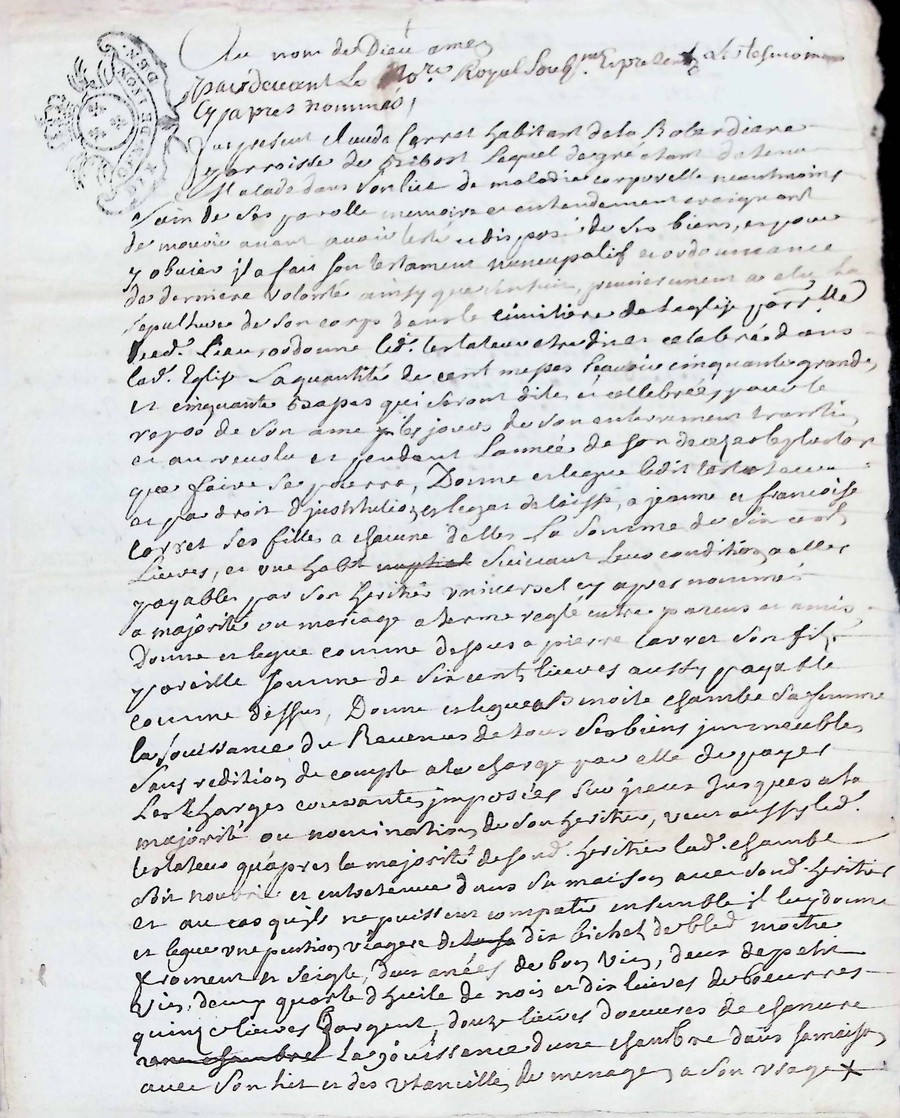 Au nom de Dieu amen
pardevant Le No.re Royal Soubg.ne Et presents Les tesmoins
Cy apres nommés,
fut present Claude Carret habitant de la Rolandiere
parroisse de Lequel de gré étant detenu
Malade dans Son lict de maladie corporelle neantmoins
Sain de Ses parolle memoire et entendement craignant
de mourir avant avoir testé et disposé de Ses biens, et pour
y obvier il a fait Son testament nuncupatif et ordonnance
de derniere volonté ainsy que s'ensuit, premierement a elu La
Sepulture de Son corps dans le cimitiere de l'eglise parr.lle
dud. Lieu, ordonne led. testateur etre dit et celebré dans
lad. Eglise La quantité de cent messes Scavoir cinquante grandes
et cinquante basses qui Seront dites et cellebrées pour le
repos de Son ame les jours de Son enterrement
et au revolu et pendant L'année de Son deces le plustot
que faire Se pourra, Donne et legue ledit testateur
et par droit d'institution et legat delaisse, a jeanne et francoise
Carret Ses filles a chacune d'elles La Somme de Six cent
Livres, et une habit nuptial Suivant Leur condition a elles
payables par Son heritier universel cy apres nommés
a majorité ou mariage a terme reglé entre parens et amis
Donne et legue comme dessus a pierre Carret Son fils
pareille Somme de Six cent livres aussy payable
comme dessus, Donne et legue a Benoite chambe Sa femme
la jouissance du Revenus de tous Ses biens immeubles
Sans reddition de compte a la charge par elle de payer
Les Charges courantes imposées Sur iceux jusques a la
majorité ou nomination de Son heritier, veut aussy led.
testateur qu'apres la majorité de Sond. heritier lad. chambe
Soit nourrie et entretenue dans Sa maison avec Sond. heritier
et au cas qu'ils ne puissent compatir ensemble il luy donne
et legue une pention viagere de dix bichet de bled moitié
froment et Seigle, deux anées de bon vin, deux de petit
vin, deux quarte d'huile de nois et dix livres de beurres
quinze livres d'argent, douze livres d'oeuvres de chanvre
une chambre La jouissance d'une chambre dans Sa maison
avec Son lict et des utancilles de menage a Son usage